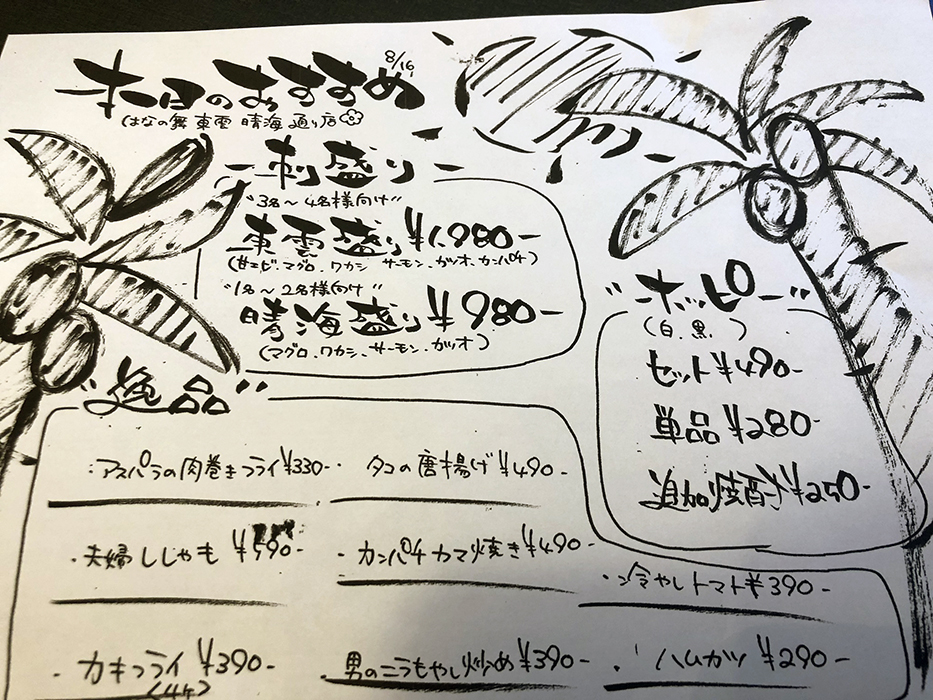 本日のおすすめ 8/16
はなの舞 東雲 晴海 通り店
刺盛り
"3名～4名様向け"
東雲盛り ¥1,980-
(甘エビ、マグロ、ワカシ サーモン、カツオ、カンパチ)
"1名～2名様向け"
晴海盛り ¥980-
(マグロ、ワカシ、サーモン、カツオ)
"ホッピー"
(白、黒 )
セット ¥490-
単品 ¥280-
追加焼酎 ¥250-
"逸品"
・アスパラの肉巻きフライ ¥330-
・タコの唐揚げ ¥490-
・夫婦ししゃも ¥590-
・カンパチカマ焼き ¥490-
・冷やしトマト ¥390-
・カキフライ ¥390-
(4ケ)
・男のニラもやし炒め ¥390-
・ハムカツ ¥290-